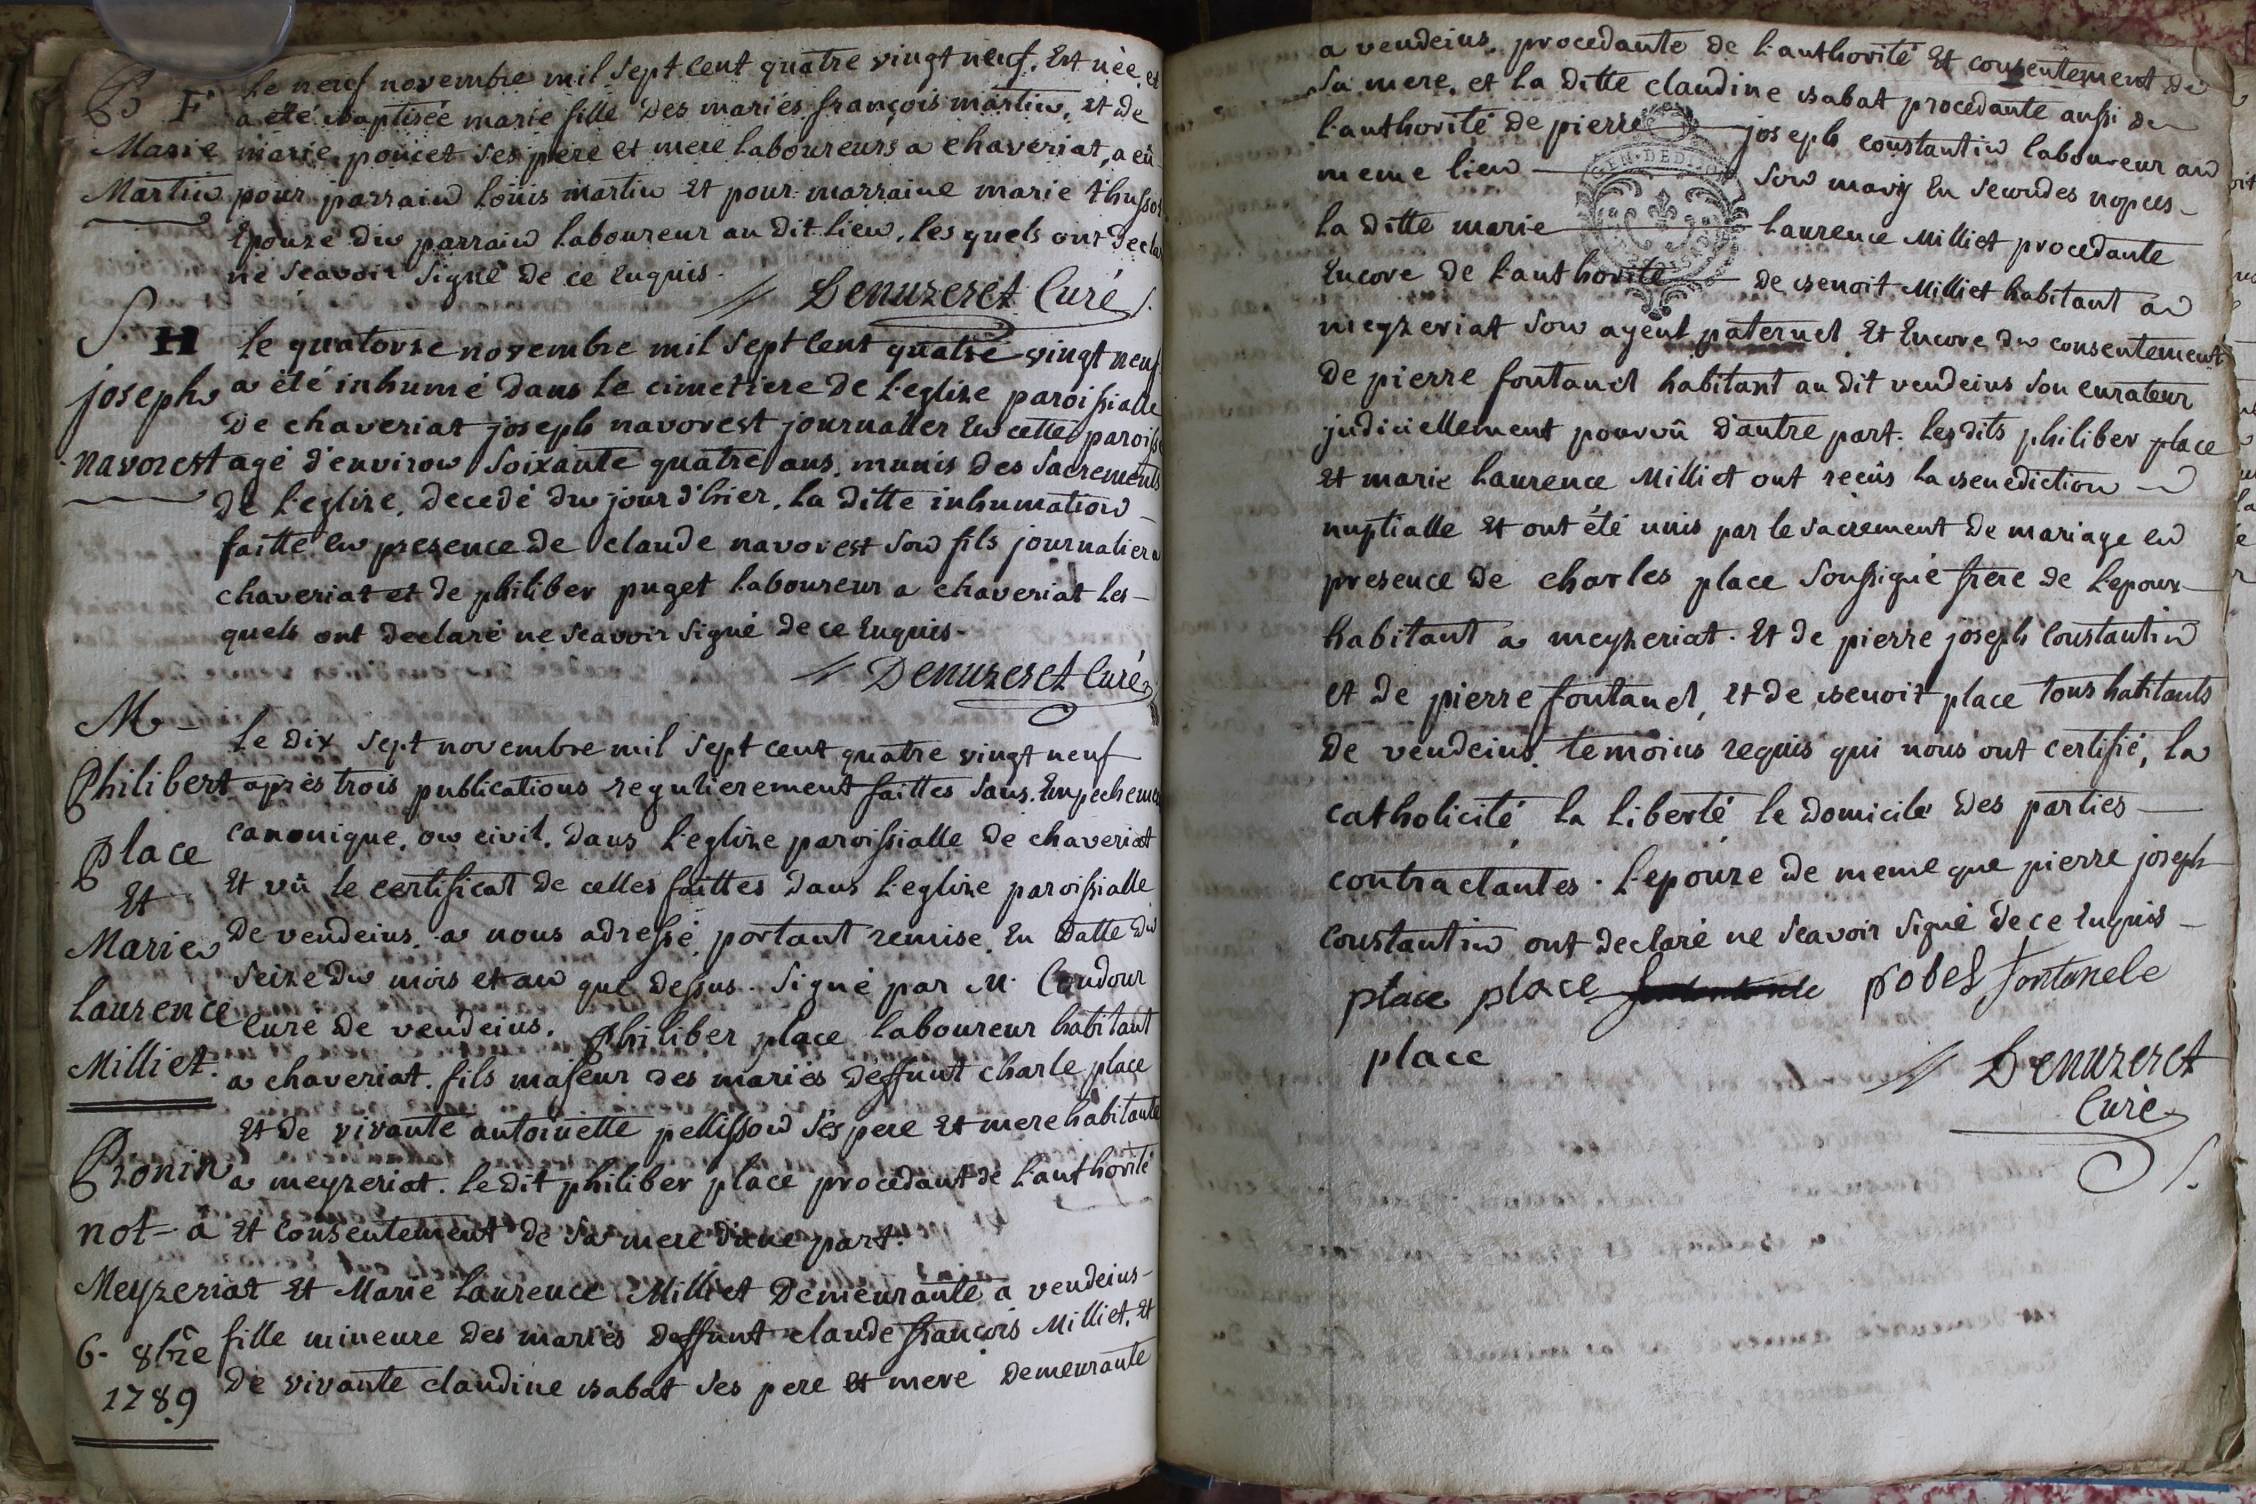 B F
Marie
Martin
Le neuf novembre mil sept cent quatre vingt neuf, Est née et
a été baptisée marie fille des mariés françois martin, et de
marie poncet ses pere et mere laboureurs a chaveriat, a eû
pour parrain loüis martin Et pour marraine marie
Epouze du parrain laboureur au dit lieu, les quels ont
ne scavoir signé de ce Enquis.
Denuzeret Curé
S. H
joseph
navorest
Le quatorze novembre mil sept cent quatre vingt neuf
a été inhumé dans le cimetiere de l'eglize paroissialle
De chaveriat joseph navorest journalier En cette paroisse
agé d'environ soixante quatre ans, munis des sacrements
de l'eglize, decedé du jour d'hier, la ditte inhumation
faitte en presence de claude navorest son fils journalier a
chaveriat et de philiber puget laboureur a chaveriat les-
quels ont declaré ne scavoir signé de ce Enquis.
Denuzeret Curé
M
Philibert
Place
Et
Marie
Laurence
Milliet.
Pronin
not- a
Meyzeriat
6- 8bre
1789
Le dix sept novembre mil sept cent quatre vingt neuf
après trois publications regulierement faittes sans
canonique, ou civil, dans l'eglize paroissialle de chaveriat
Et vû le certificat de celles faittes dans l'eglize paroissialle
de vendeins, a nous adressé, portant remise, En datte du
seize du mois et an que dessus. Signé par M. Coudour
Curé de vendeins. Philiber place laboureur habitant
a chaveriat, fils majeur des mariés deffunt charle place
Et de vivante antoinette pellisson ses pere Et mere habitante
a meyzeriat. Le dit philiber place procedant de l'authorité
Et consentement de sa mere d'une part.
Et Marie Laurence Milliet Demeurante a vendeins-
fille mineure des mariés deffunt claude françois Milliet, Et
de vivante claudine isabat ses pere et mere demeurante
a vendeins, procedante de l'authorité Et consentement de
sa mere, et la ditte claudine isabat procedante aussi de
l'authorité de pierre joseph constantin laboureur au
meme lieu son mary En secondes nopces
la ditte marie laurence Milliet procedante
Encore de l'authorité de benoit Milliet habitant a
meyzeriat son ayeul paternel Et Encore du consentement
De pierre fontanel habitant au dit vendeins son curateur
judiciellement pourvû d'autre part. les dits philiber place
Et marie laurence Milliet ont reçûs la benediction
nuptialle Et ont été unis par le sacrement de mariage en
presence de charles place soussigné frere de l'epoux
habitant a meyzeriat. Et de pierre joseph constantin
et de pierre fontanel, et de benoit place tous habitants
de vendeins, temoins requis qui nous ont certifié, la
catholicité la liberté le domicile des parties
contractantes. l'epouze de meme que pierre joseph
constantin ont declaré ne scavoir signé de ce Enquis
place place pobel fontanele
place
Denuzeret
Curé